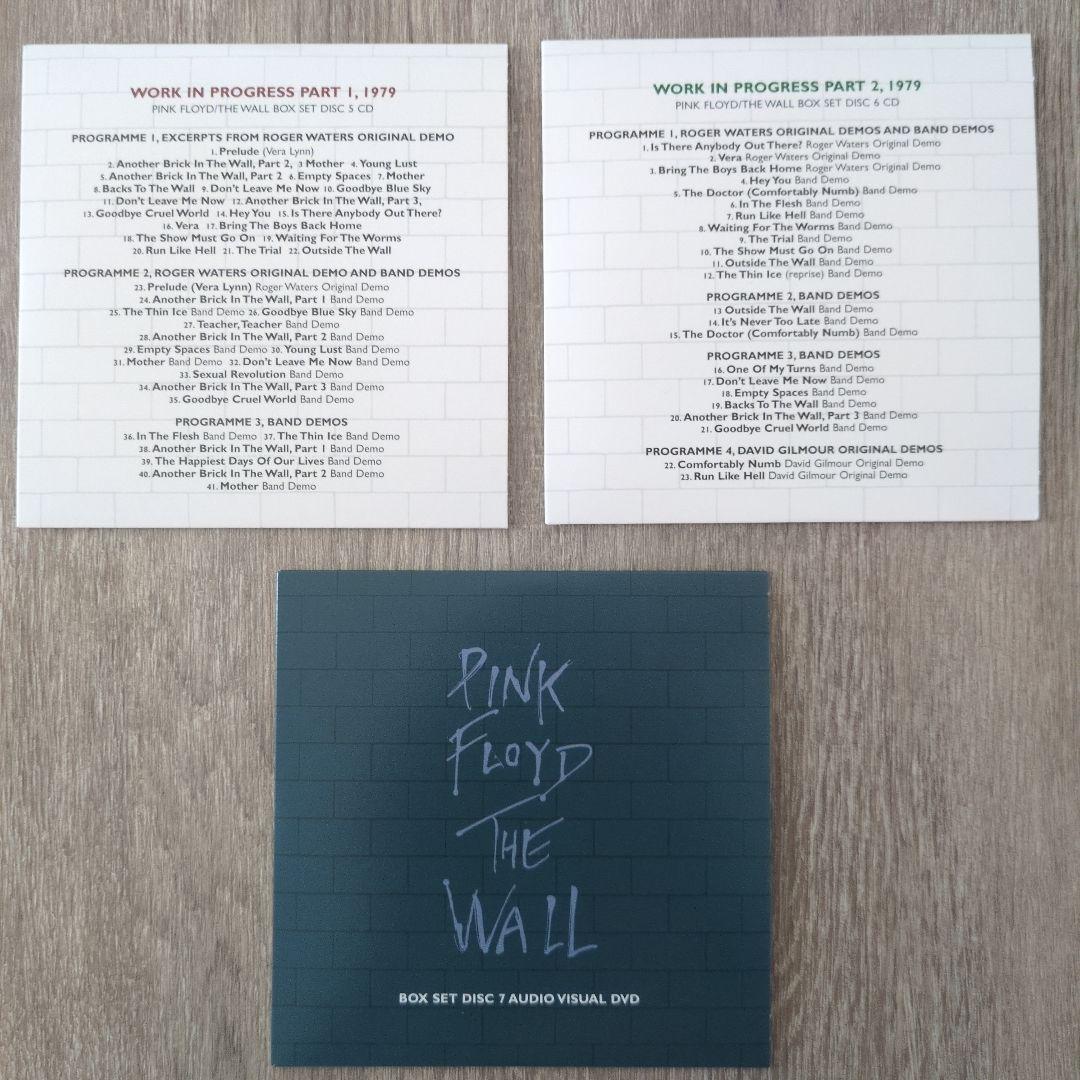 WORK IN PROGRESS PART 1, 1979
PINK FLOYD/THE WALL BOX SET DISC 5 CD
PROGRAMME 1, EXCERPTS FROM ROGER WATERS ORIGINAL DEMO
1. Prelude (Vera Lynn)
2. Another Brick In The Wall, Part 2, 3 Mother 4. Young Lust
5. Another Brick In The Wall, Part 2 6. Empty Spaces 7. Mother
8. Backs To The Wall 9. Don't Leave Me Now 10. Goodbye Blue Sky
11. Don't Leave Me Now 12. Another Brick In The Wall, Part 3,
13. Goodbye Cruel World 14. Hey You 15. Is There Anybody Out There?
16. Vera 17. Bring The Boys Back Home
18. The Show Must Go On 19. Waiting For The Worms
20. Run Like Hell 21. The Trial 22. Outside The Wall
PROGRAMME 2, ROGER WATERS ORIGINAL DEMO AND BAND DEMOS
23. Prelude (Vera Lynn) Roger Waters Original Demo
24. Another Brick In The Wall, Part 1 Band Demo
25. The Thin Ice Band Demo 26. Goodbye Blue Sky Band Demo
27. Teacher, Teacher Band Demo
28. Another Brick In The Wall, Part 2 Band Demo
29. Empty Spaces Band Demo 30. Young Lust Band Demo
31. Mother Band Demo 32. Don't Leave Me Now Band Demo
33. Sexual Revolution Band Demo
34. Another Brick In The Wall, Part 3 Band Demo
35. Goodbye Cruel World Band Demo
PROGRAMME 3, BAND DEMOS
36. In The Flesh Band Demo 37. The Thin Ice Band Demo
38. Another Brick In The Wall, Part 1 Band Demo
39. The Happiest Days Of Our Lives Band Demo
40. Another Brick In The Wall, Part 2 Band Demo
41. Mother Band Demo
WORK IN PROGRESS PART 2, 1979
PINK FLOYD/THE WALL BOX SET DISC 6 CD
PROGRAMME 1, ROGER WATERS ORIGINAL DEMOS AND BAND DEMOS
1. Is There Anybody Out There? Roger Waters Original Demo
2. Vera Roger Waters Original Demo
3. Bring The Boys Back Home Roger Waters Original Demo
4. Hey You Band Demo
5. The Doctor (Comfortably Numb) Band Demo
6. In The Flesh Band Demo
7. Run Like Hell Band Demo
8. Waiting For The Worms Band Demo
9. The Trial Band Demo
10. The Show Must Go On Band Demo
11. Outside The Wall Band Demo
12. The Thin Ice (reprise) Band Demo
PROGRAMME 2, BAND DEMOS
13 Outside The Wall Band Demo
14. It's Never Too Late Band Demo
15. The Doctor (Comfortably Numb) Band Demo
PROGRAMME 3, BAND DEMOS
16. One Of My Turns Band Demo
17. Don't Leave Me Now Band Demo
18. Empty Spaces Band Demo
19. Backs To The Wall Band Demo
20. Another Brick In The Wall, Part 3 Band Demo
21. Goodbye Cruel World Band Demo
PROGRAMME 4, DAVID GILMOUR ORIGINAL DEMOS
22. Comfortably Numb David Gilmour Original Demo
23. Run Like Hell David Gilmour Original Demo
PINK
FLOYD
THE
WALL
BOX SET DISC 7 AUDIO VISUAL DVD